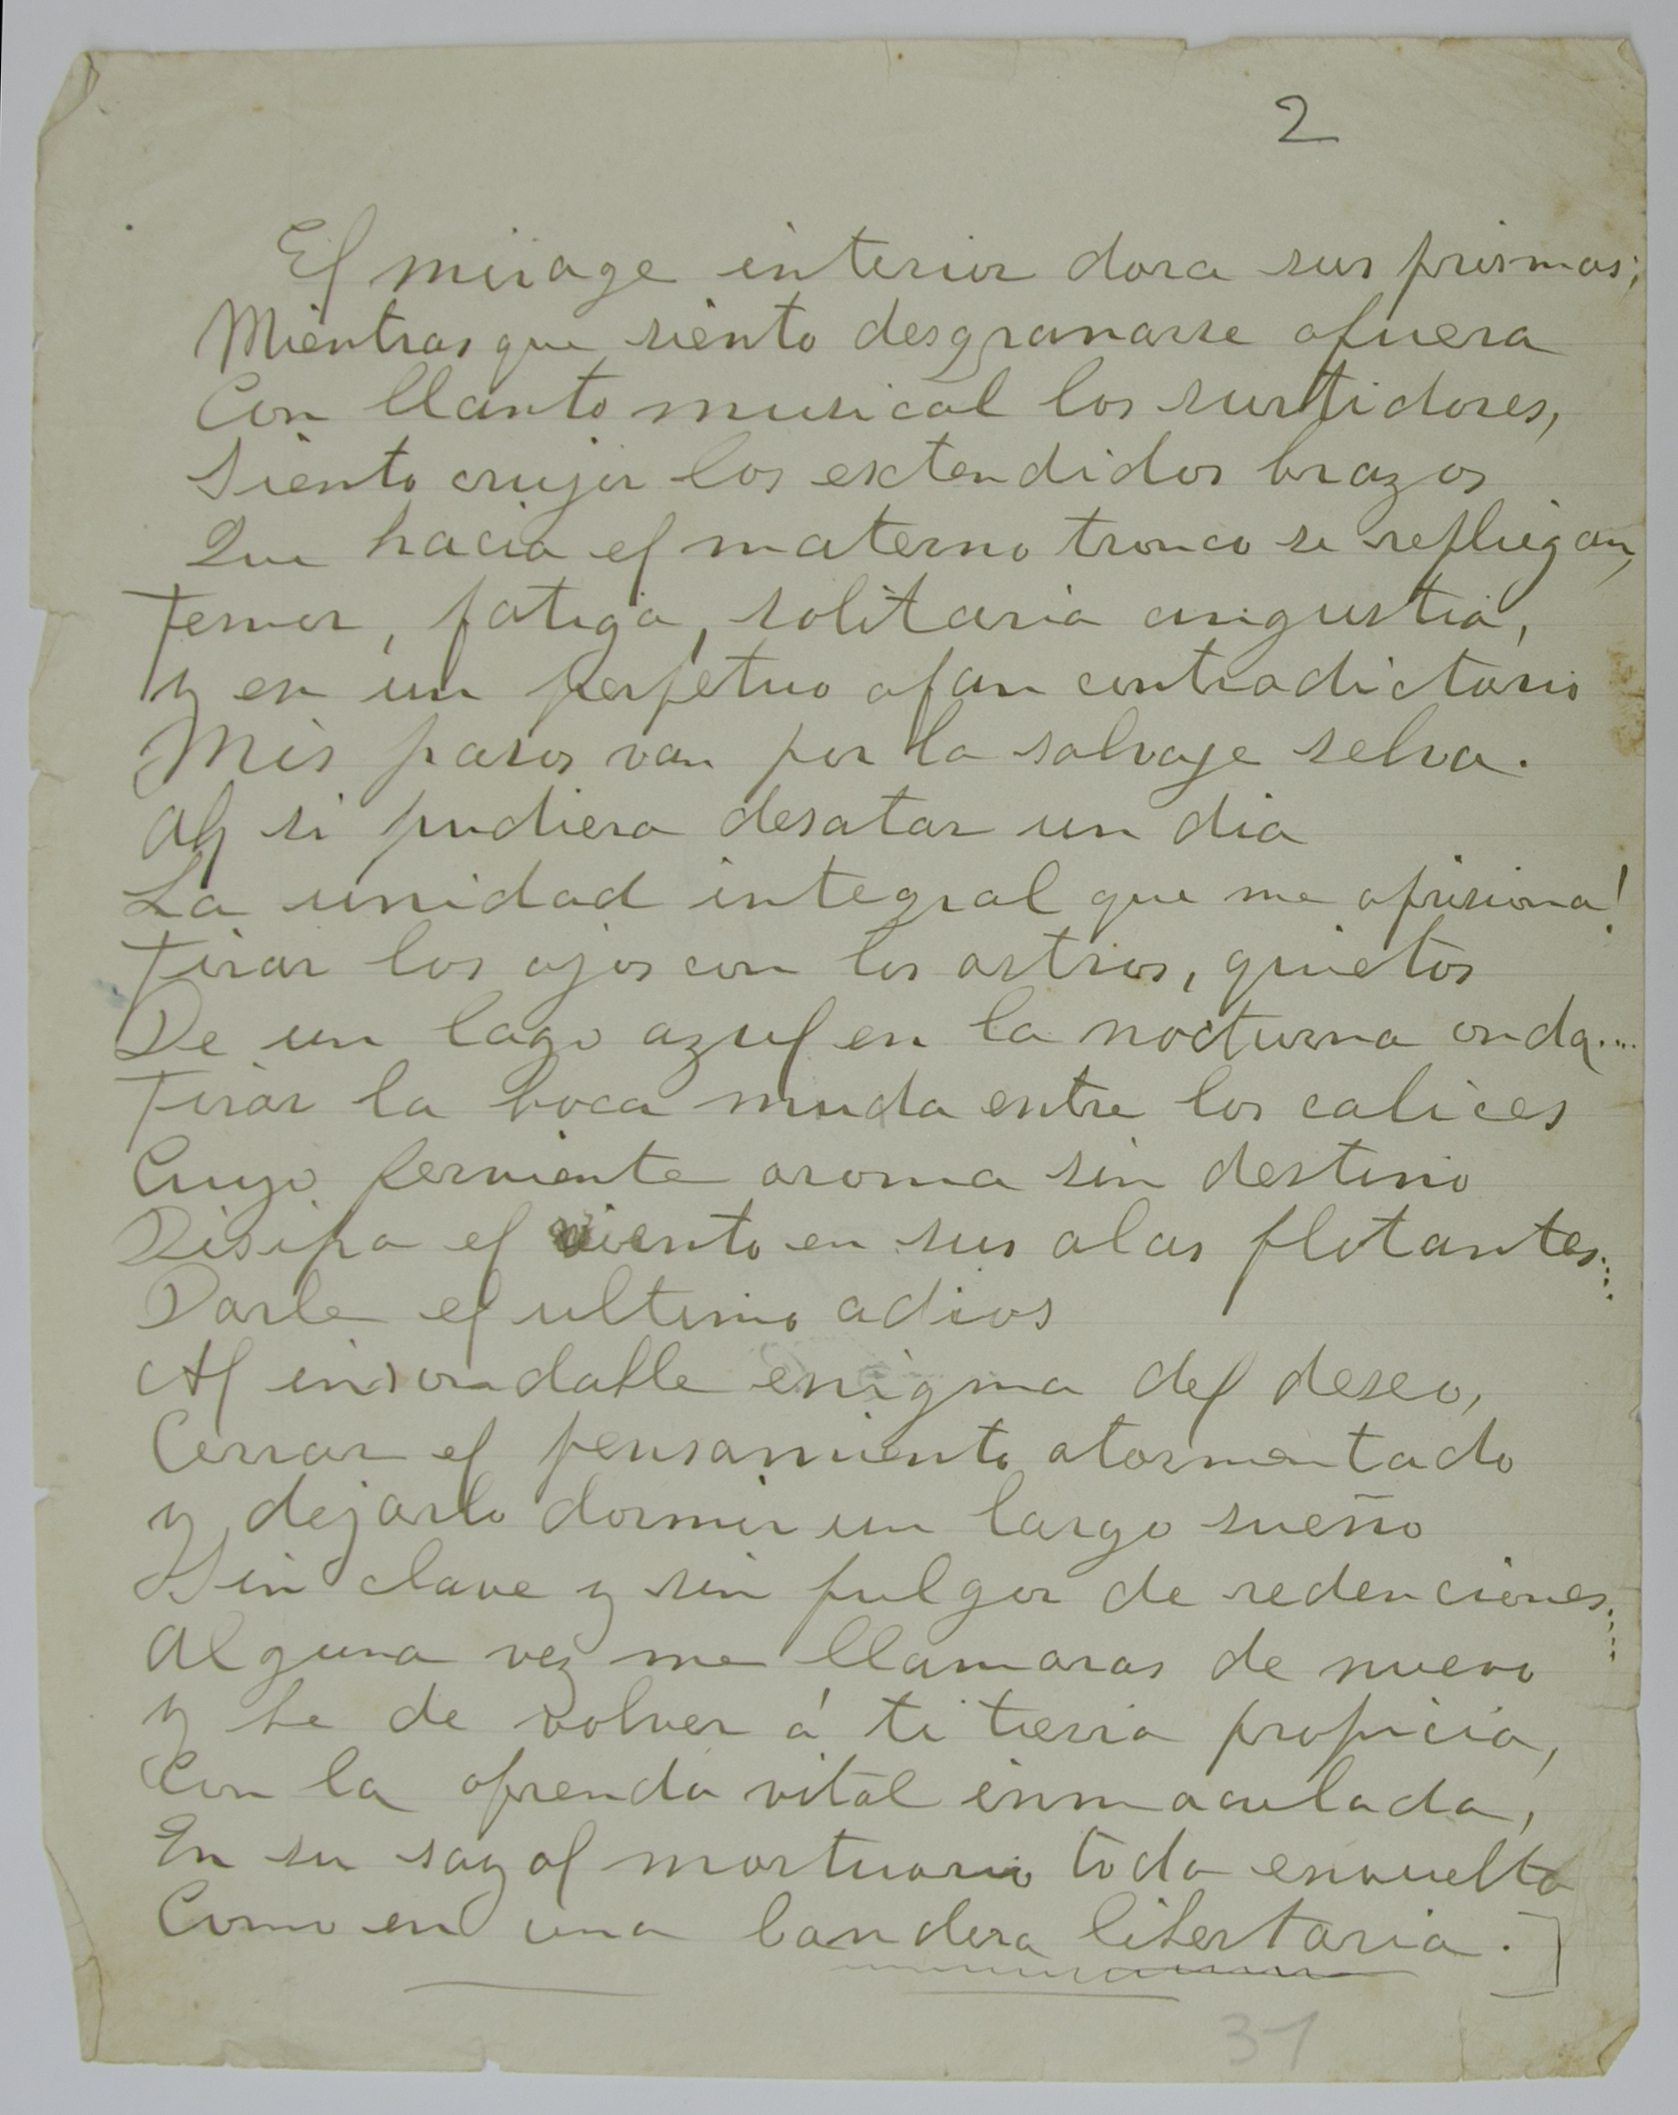 2
El mirage interior dora sus prismas;
Mientras que siento desgranarse afuera
Con llanto musical los surtidores,
Siento crujir los extendidos brazos
Que hacia el materno tronco se repliegan,
Temor, fatiga, solitaria angustia,
y en un perpetuo afan contradictorio
Mis pasos van por la salvaje selva.
Ah si pudiera desatar un dia
La unidad integral que me aprisiona!
Tirar los ojos con los astros, quietos
De un lago azul en la nocturna onda....
Tirar la boca muda entre los calices
Cuyo ferviente aroma sin destino
Disipa el viento en sus alas flotantes....
Darle el ultimo adios
Al insondable enigma del deseo,
Cerrar el pensamiento atormentado
y dejarlo dormir un largo sueño
Sin clave y sin fulgor de redenciones....
Alguna vez me llamaras de nuevo
y he de volver á ti tierra propicia,
Con la ofrenda vital inmaculada,
En su sayal mortuorio toda envuelta
Como en una bandera libertaria.]
31